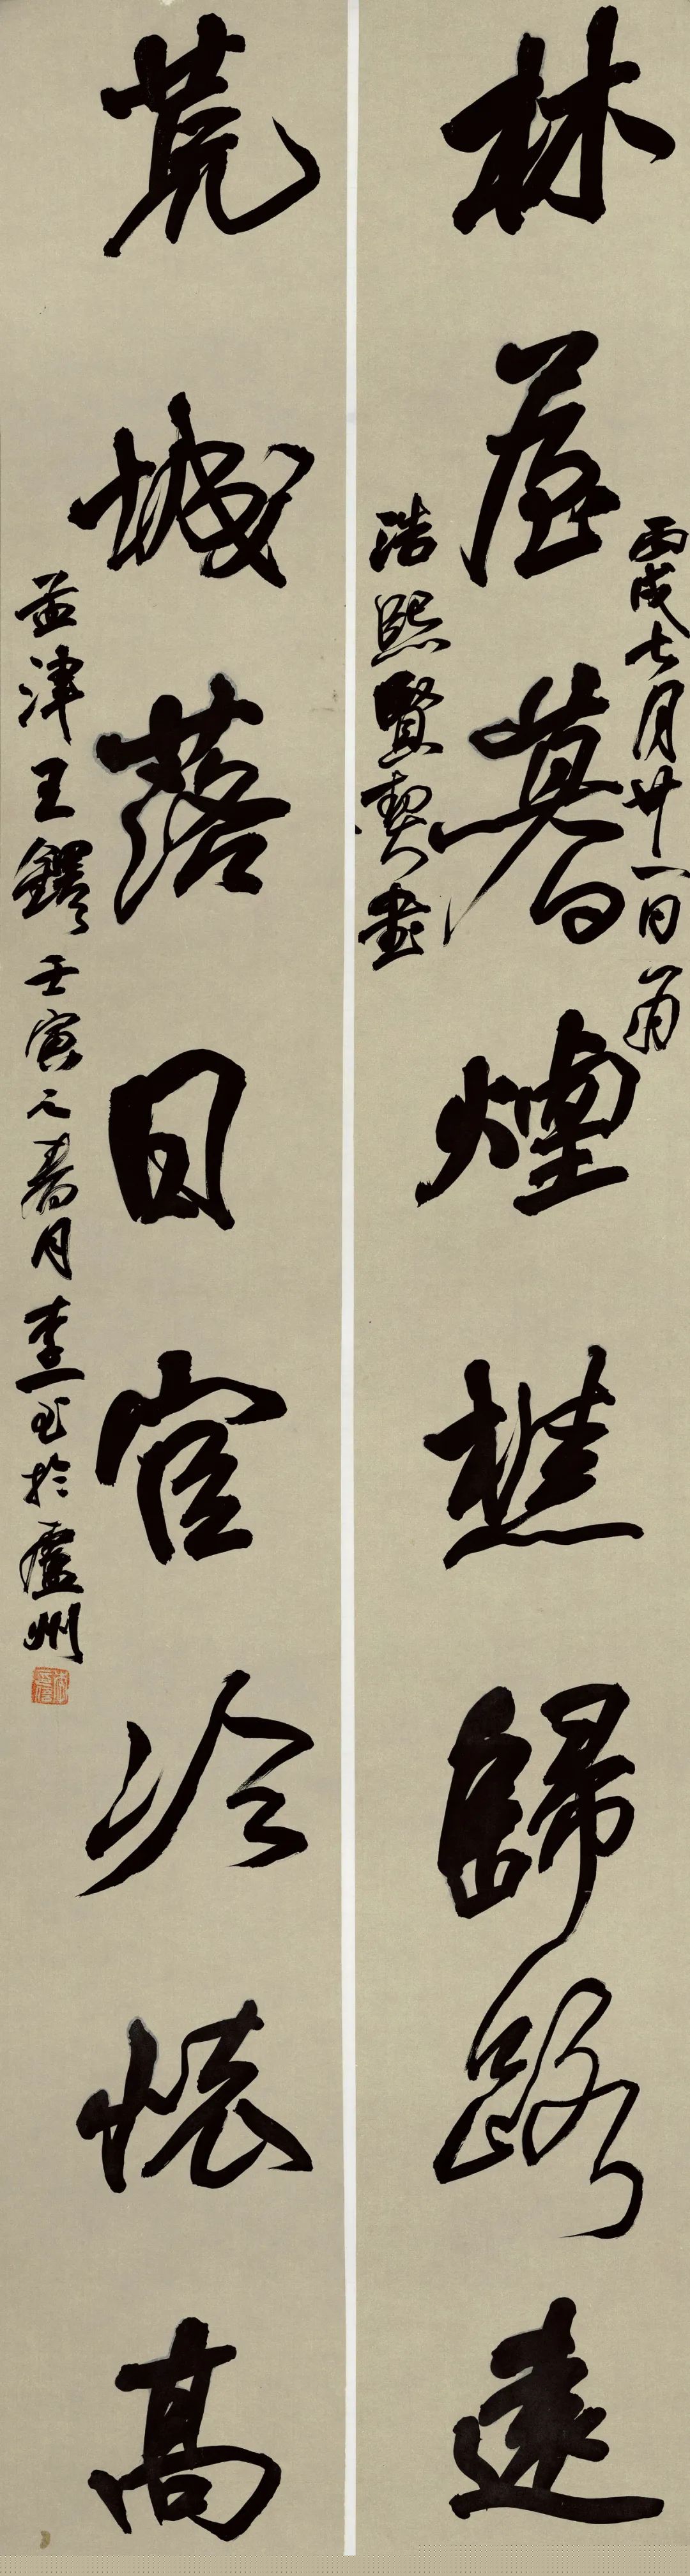 丙戌七月廿一日爲
林屋暮煙樵歸路遠
浩熙賢契書
荒城落日官冷懷高
孟津王鐸 壬寅元春月 李 於廬州